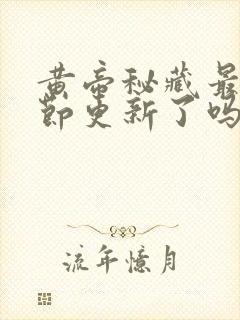 黄帝秘藏最
节更新了吗
流年憶月